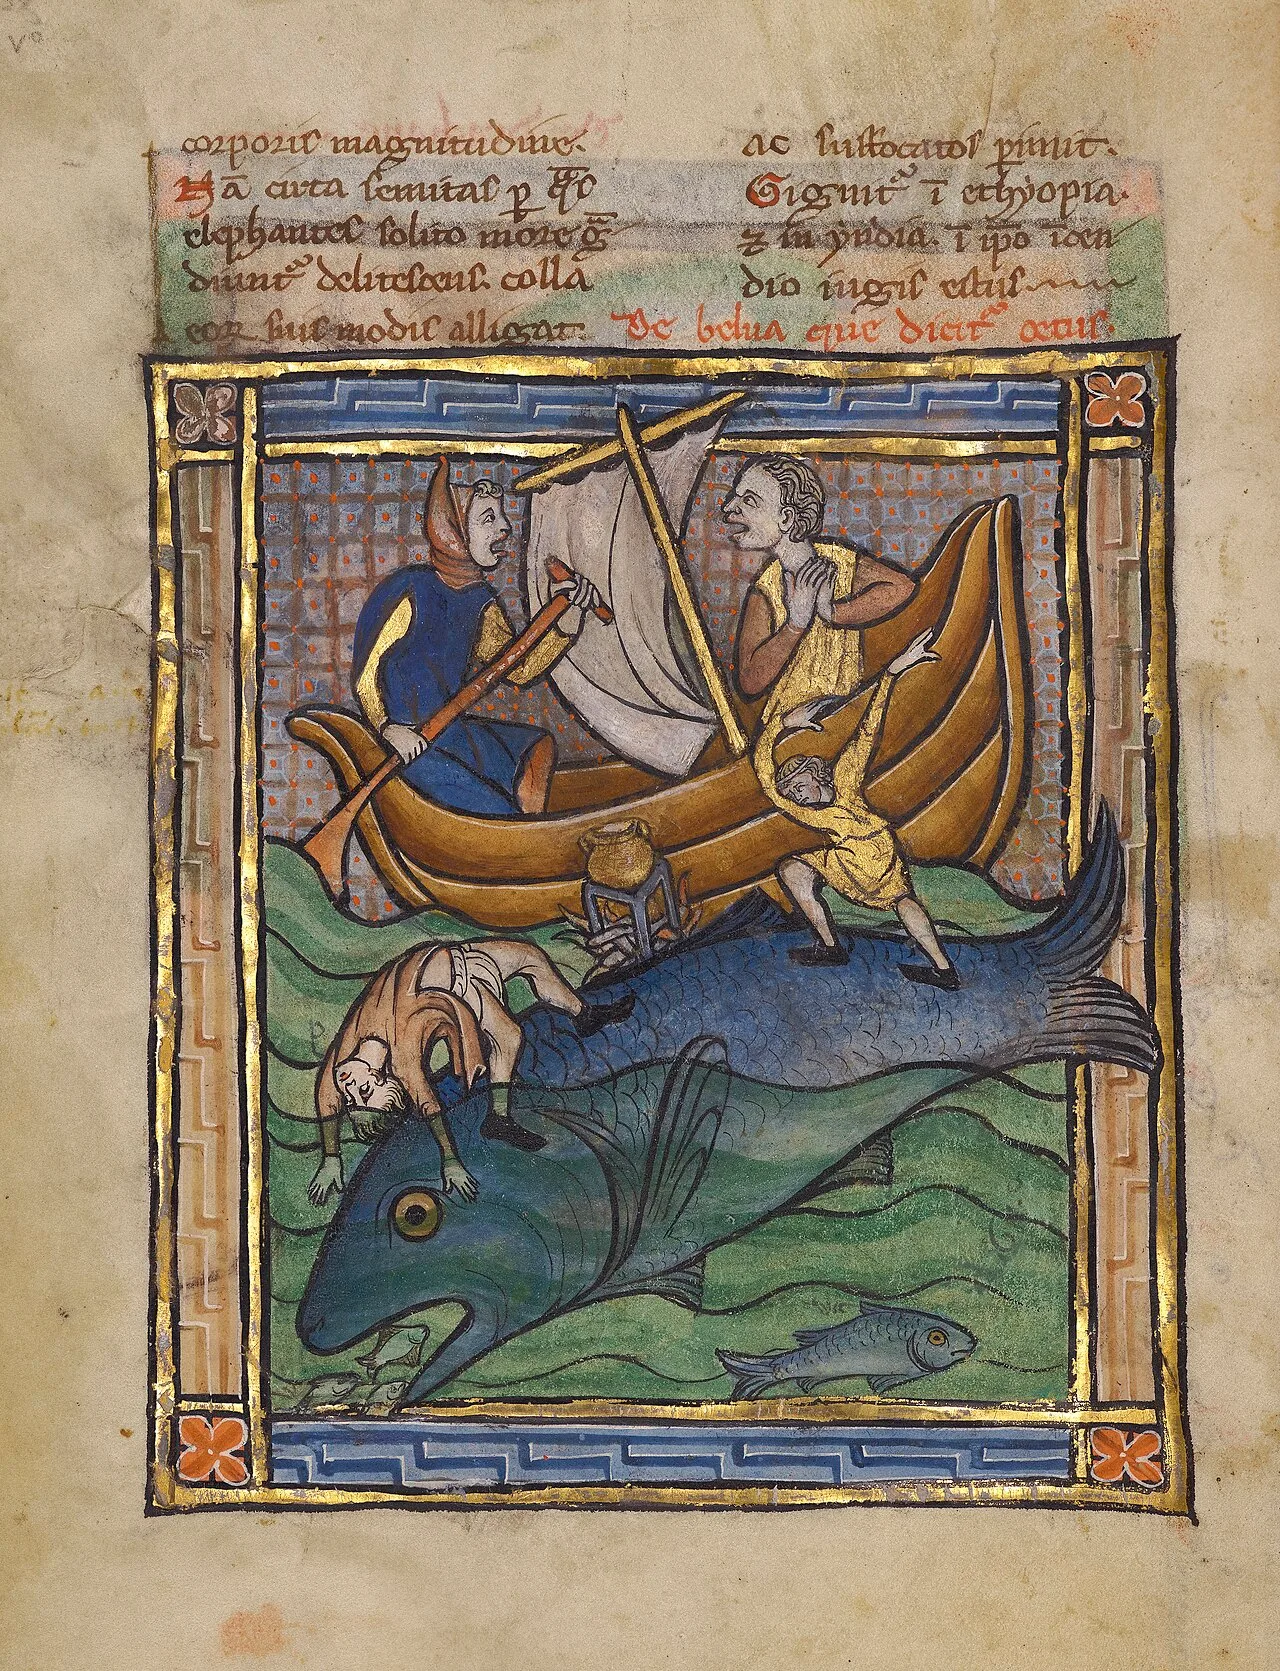 corporis magnitudine.
Nā circa semitas p̱ q̄s
elephantes solito more ḡ
diunt᷒ delitescens. colla
eoꝝ suis modis alligat.
ac suffocatos pimit.
Gignit᷒ ī ethyopia.
⁊ in yndia. ī ip̄o īcen
dio iugis estus.
De belua que dicit᷒ cetus.